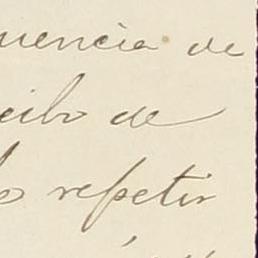 uencia de
cibo de
repetir